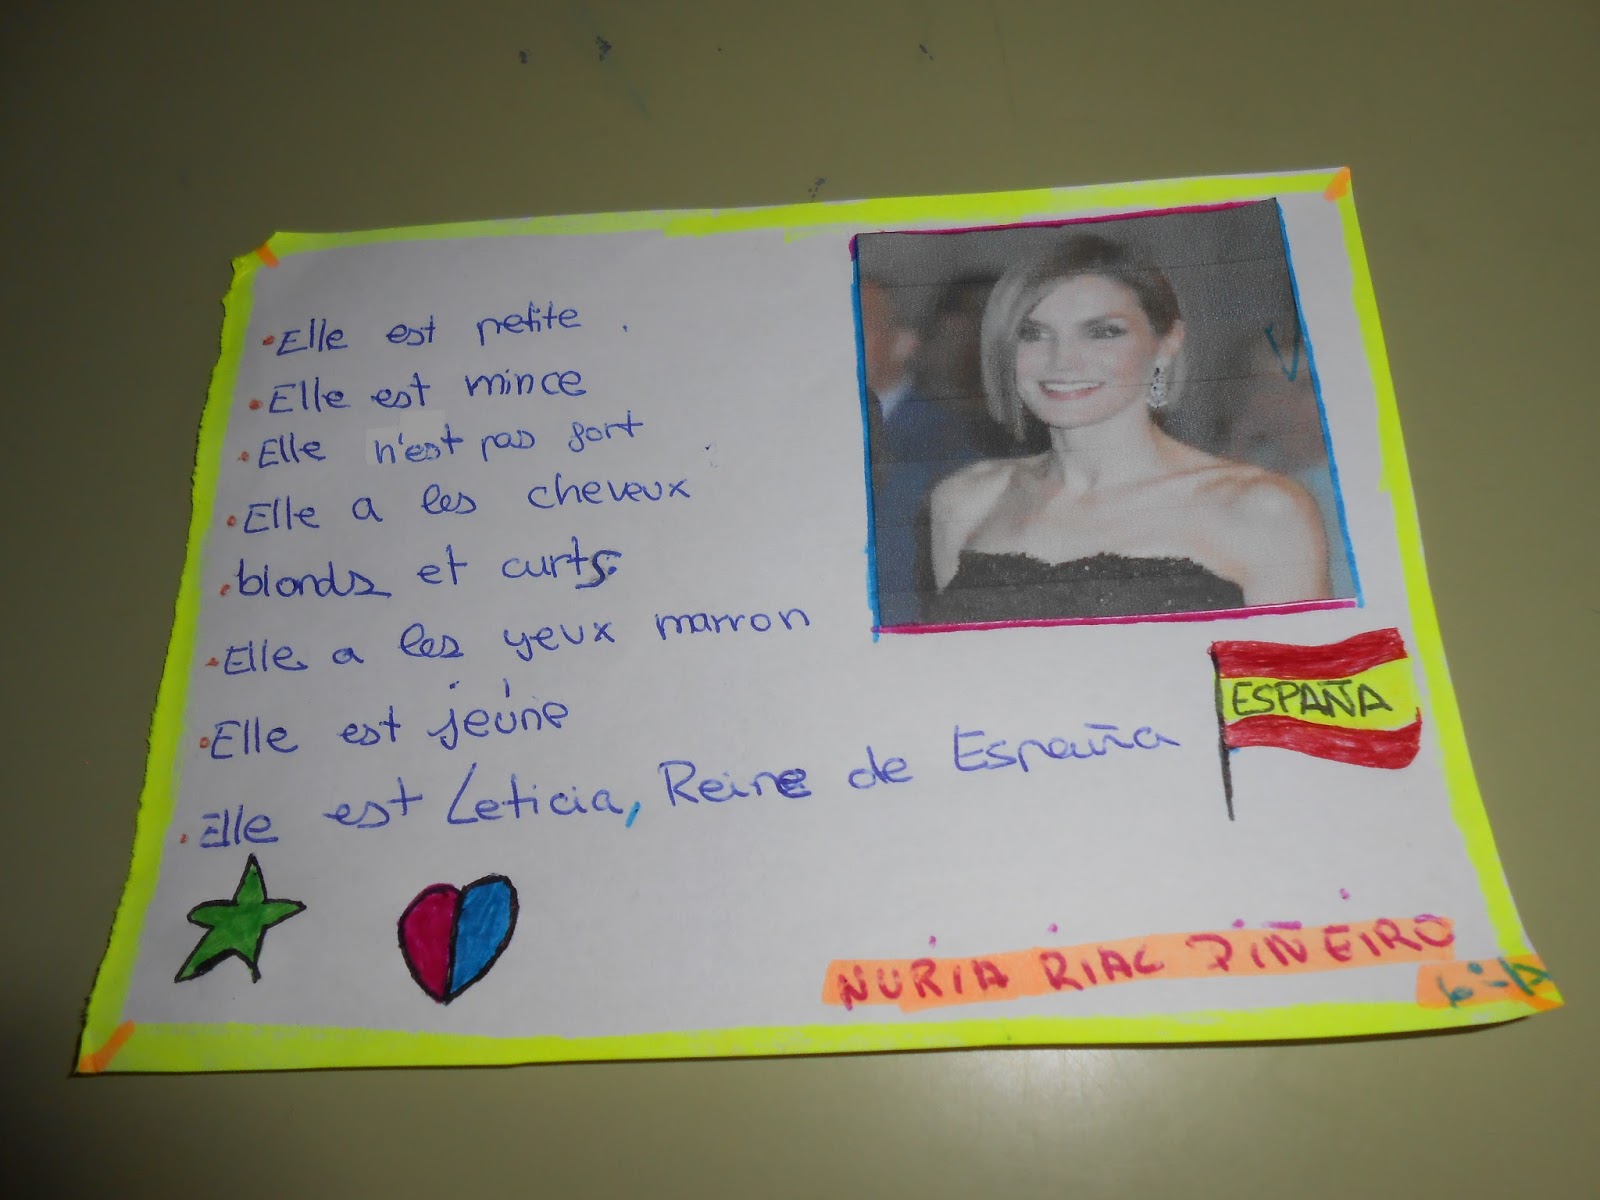 Elle est petite.
Elle est mince
Elle n'est pas fort
Elle a les cheveux
blonds et curts.
Elle a les yeux marron
Elle est jeúne
Elle est Leticia, Reine de España
ESPAÑA
NURIA RIAL PIÑEIRO
6º-A